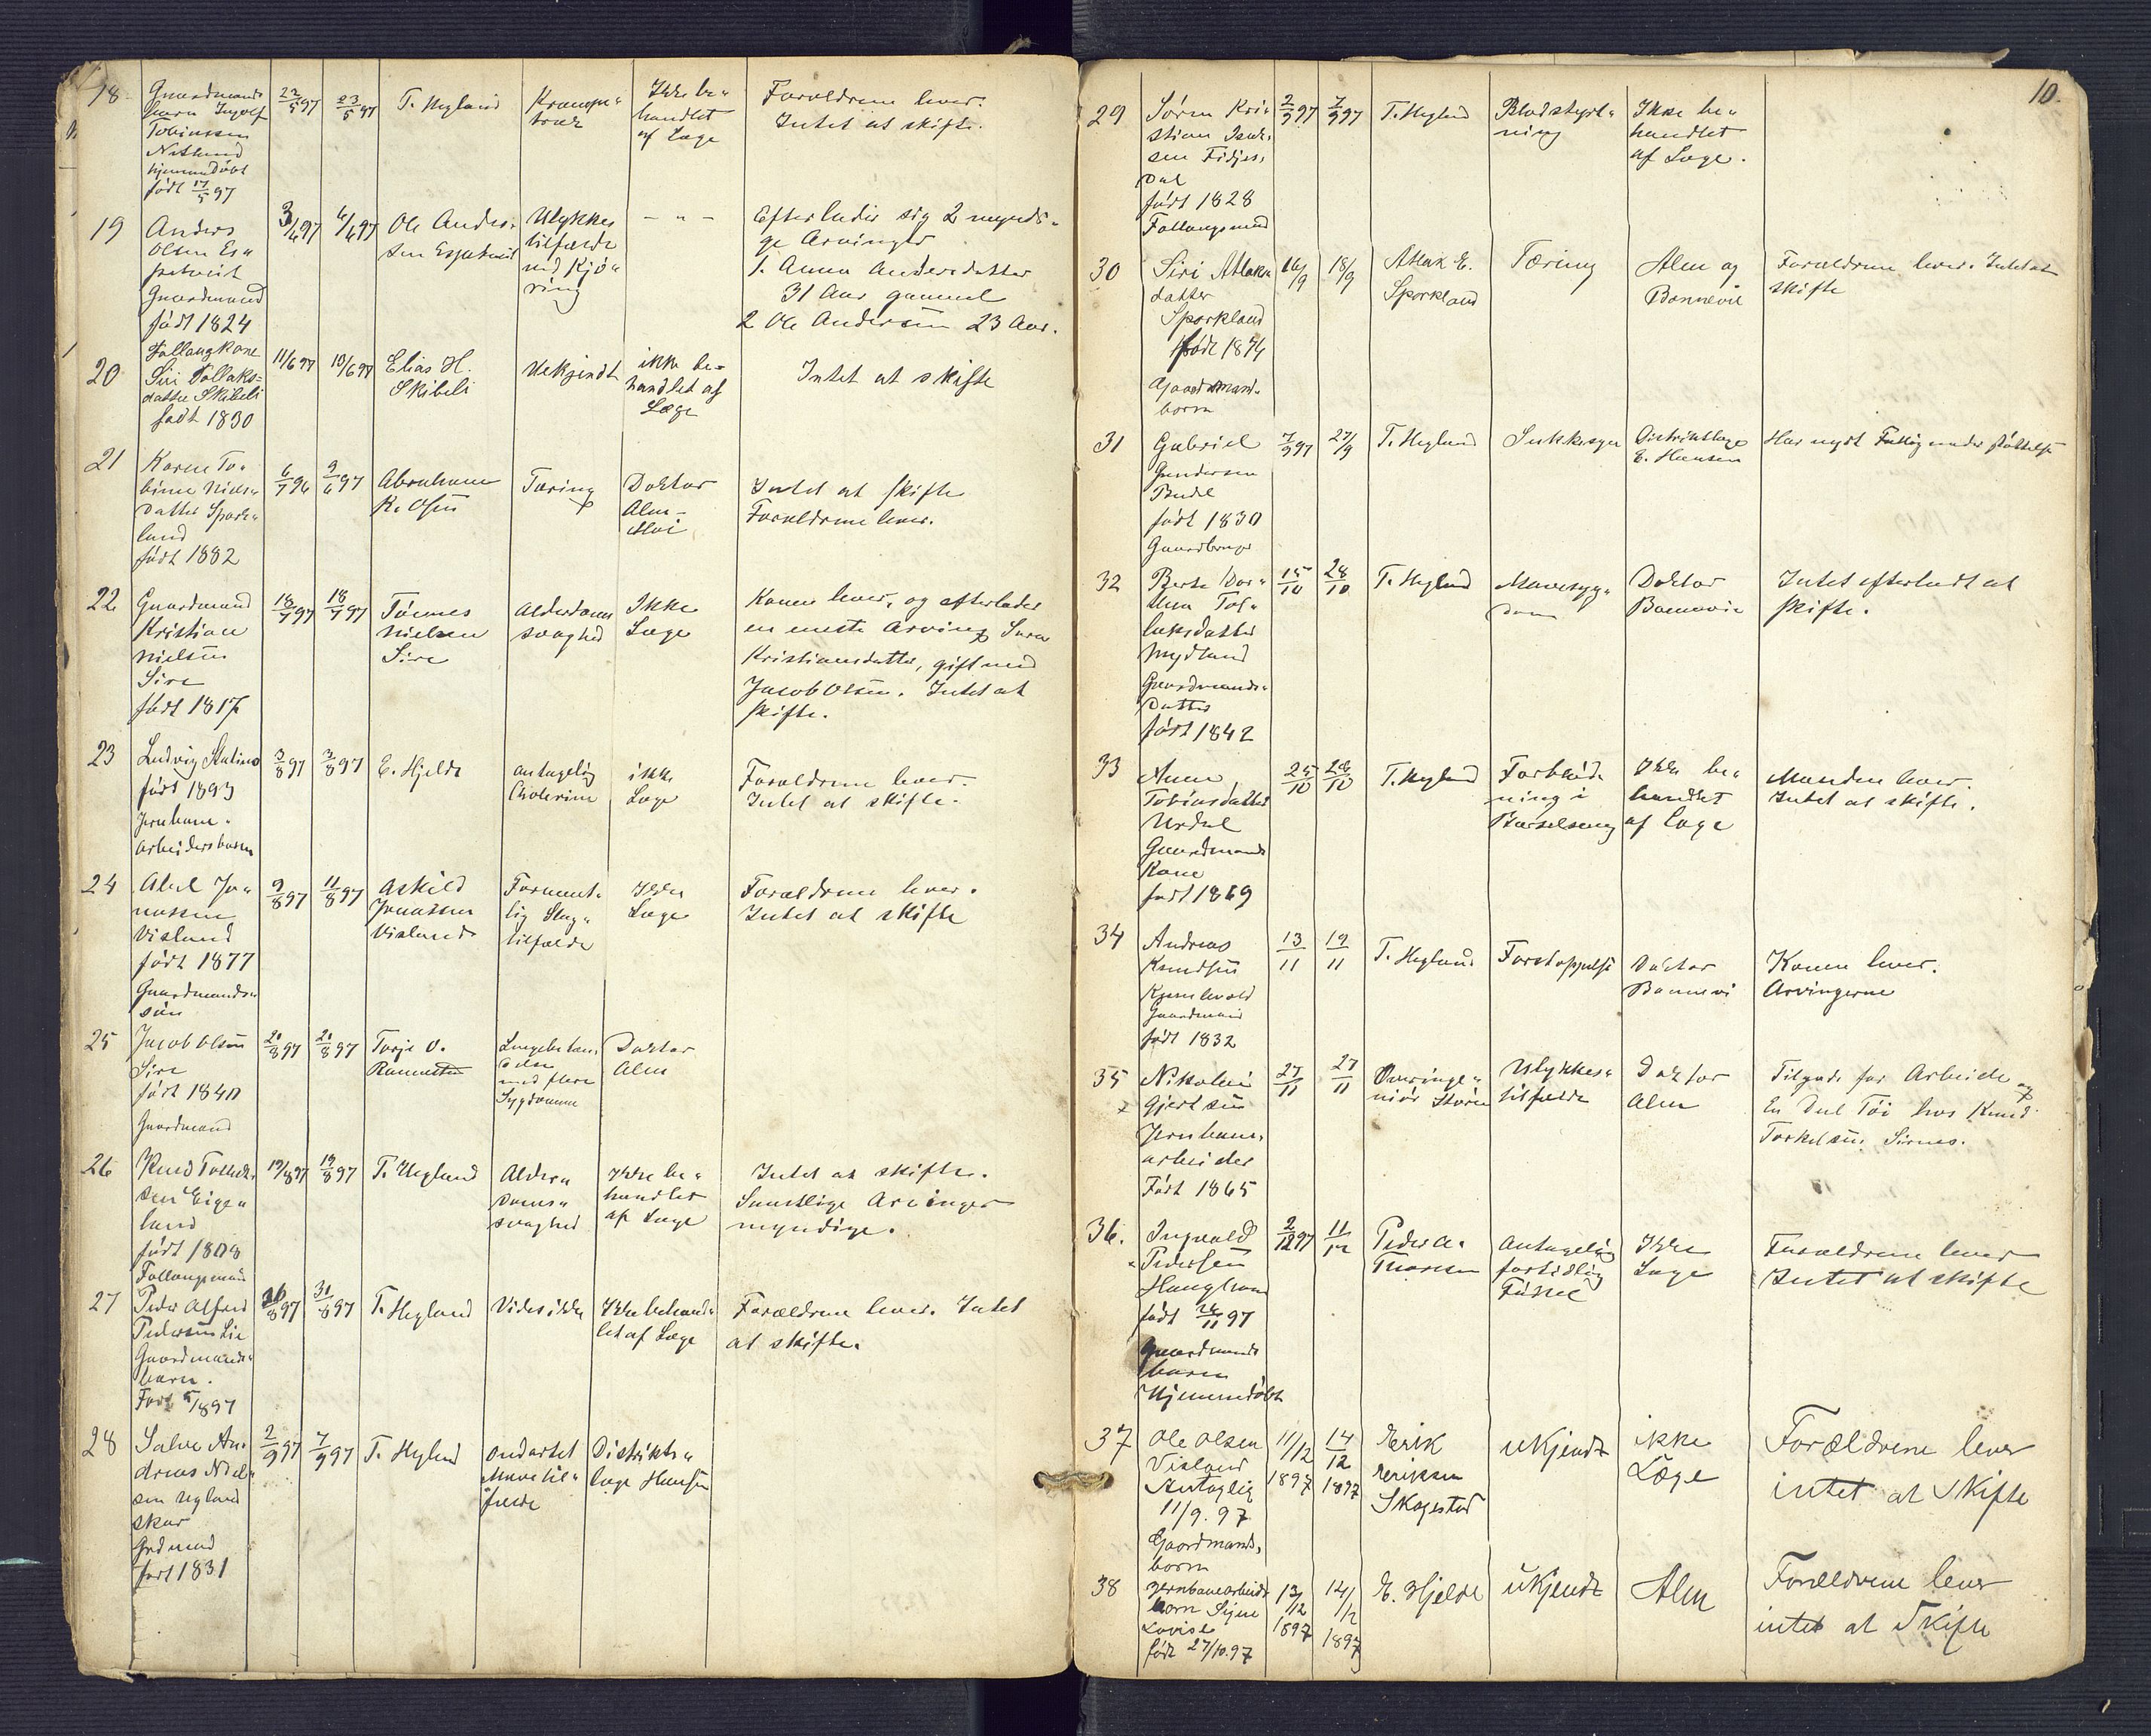 10.
18
Gaardmands
barn Ingvolf
Tobiassen
Netland
hjemmedöbt
født 17/5 97
22/5 97
23/5 97
T. Hegland
Krampe„
træk
Ikke be„
handlet
af Læge
Forældrene lever.
Intet at skifte.
19
Anders
Olsen Es„
petveit
Gaardmand
født 1824
3/6 97
4/6 97
Ole Ander„
sen Espetveit
Ulykkes
tilfælde
ved Kjö„
ring
– „ –
Efterlader sig 2 myndi„
ge Arvinger
1. Anna Andersdatter
31 Aar gammel
2 Ole Andersen 23 Aar.
20
Follaugkone
Siri Tollaks=
datter Skibeli
født 1830
11/6 97
13/6 97
Elias H.
Skibeli
Ukjendt
ikke be=
handlet af
Læge
Intet at skifte
21
Karen To„
bine Niels„
datter Spork„
land
født 1882
6/7 96
9/6 97
Abraham
K. Osen
Tæring
Doktor
Alm –
Moi
Intet at skifte
Forældrene lever.
22
Gaardmand
Kristian
Nielsen
Sire
født 1817
18/7 97
18/7 97
Tönnes
Nielsen
Sire
Alderdoms
svaghed
Ikke
Læge
Konen lever, og efterlader
en eneste Arving Sara
Kristiansdatter, gift med
Jacob Olsen. Intet at
skifte.
23
Ludvig
født 1893
Jernbane„
arbeidersbarn
3/8 97
3/8 97
E. Hjelde
antagelig
Cholerine
ikke
Læge
Forældrene lever.
Intet at skifte.
24
Abel Jo„
nassen
Visland
født 1877
Gaardmands„
sön
9/8 97
11/8 97
Askild
Jonassen
Visland
Formentlig
Slag„
tilfælde
Ikke
Læge
Forældrene lever.
Intet at skifte
25
Jacob Olsen
Sire
født 1840
Gaardmand
20/8 97
20/8 97
Torje O.
Lungebetæn„
delse
med flere
Sygdomme
Doktor
Alm
26
Knud Tollak„
sen Eige„
land
født 1808
Follaugsmand
19/8 97
19/8 97
T. Hegland
Alder„
doms„
svaghed
Ikke be„
handlet
af Læge
Intet at skifte.
Samtlige Arvinger
myndige.
27
Peder Alfred
Pedersen Lie
Gaardmands„
barn.
Född 5/8 97
26/8 97
31/8 97
T. Hegland
Vides ikke
Ikke behand„
let af Læge
Forældrene lever. Intet
at skifte.
28
Salve An„
dreas Niel„
sen Ugland
skar
Grdmand
født 1831
2/9 97
7/9 97
T. Hegland
ondartet
Mavetil„
fælde
Distrikts„
læge Hansen
29
Sören Kri„
stian Isak„
sen Fidjes„
dal
født 1828
Follaugsmand
2/9 97
7/9 97
T. Hegland
Blodstyrt„
ning
Ikke be„
handlet
af Læge.
30
Siri Atlaks
datter
Sporkland
född 1874
Gaardmands
barn
16/9
18/9
Atlak E.
Sporkland
Tæring
Alm og
Bonnevie
Forældrene lever. Intet at
skifte
31
Gabriel
Gundersen
Budel
født 1830
Gaardbruger
7/9 97
27/9
T. Hegland
Sukkersyge
Distriktslæge
E. Hansen
Har nydt Fattigunderstöttelse
32
Berte Dor„
thea Tol„
laksdatter
Mydland
Gaardmands„
Datter
født 1842
15/10
28/10
T. Hegland
Mavesyg„
dom
Doktor
Bonnevie
Intet efterladt at
skifte.
33
Anna
Tobiasdatter
Urdal
Gaardmands
Kone
født 1869
25/10
28/10
T. Hegland
Forblöd„
ning i
Barselseng
Ikke be„
handlet
af Læge
Manden lever.
Intet at skifte.
34
Andreas
Knudsen
Gaardmand
født 1832
13/11
19/11
T. Hegland
Forstoppelse
Doktor
Bonnevi
Konen lever.
Arvingerne
35
Nikolai
Gjertsen
Jernbane„
arbeider
Född 1865
27/11
27/11
Overinge„
niör Storen
Ulykkes„
tilfælde
Doktor
Alm
Tilgode for Arbeide og
En Del Töi hos Knud
Torkelsen Sirnes.
36.
Ingvald
Pedersen
Haughom
født 26/11 97
Gaardmands
barn
Hjemmedöbt
2/12 97
11/12
Peder A.
Thorsen
Antagelig
fortidlig
Födsel
Ikke
Læge
Forældrene lever
Intet at skifte
37
Ole Olsen
Visland
Antaglig
11/9. 97
Gaardmands„
barn
11/12
1897
14/12
1897
Erik
Eriksen
Skogestad
ukjendt
ikke
Læge
Forældrene lever
intet at Skifte
38
Jernbanearbeider
barn Signe
Lovise
född 27/10. 97
13/12
1897
14/12
1897
E. Hjelde
ukjendt
Alm
Forældrene lever
intet at Skifte